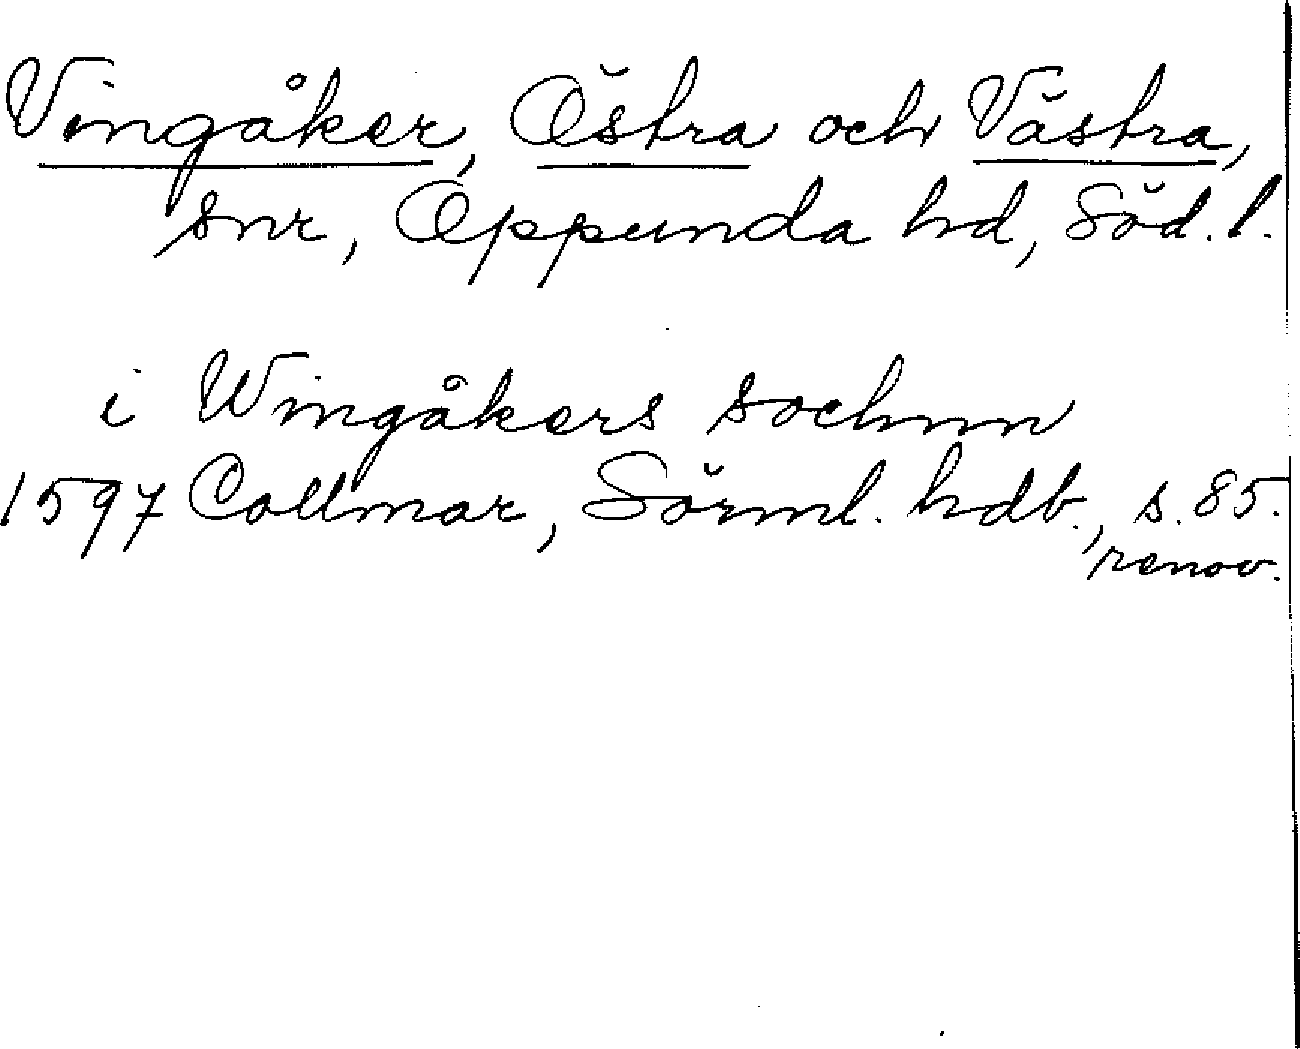 Vingåker, Östra och Västra,
snr, Oppunda hd, Söd. l.
i Wingåkers sochnn
1597 Collmar, Sörml. hdb., s. 85.
renov.